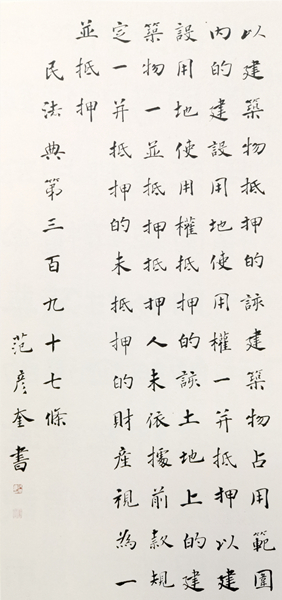 以建築物抵押的該建築物占用範圍
内的建設用地使用權一并抵押以建
設用地使用權抵押的該土地上的建
築物一並抵押抵押人未依據前款規
定一并抵押的未抵押的財產視為一
並抵押
民法典第三百九十七條
范彦奎書